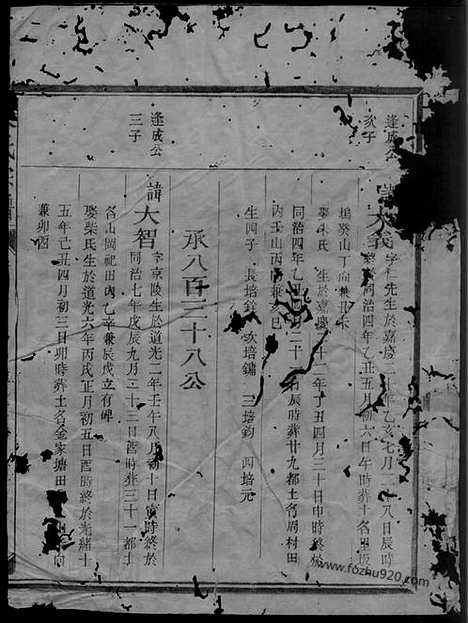 逢成公
次子
諱大 字仁先生於嘉慶二十年乙亥七月 八日辰時
同治四年乙丑五月初六日午時葬土名
塢癸山丁向兼丑未
娶朱氏生於嘉慶 十二年丁丑四月三十日申時終於
同治四年乙丑四月二十 日辰時葬廿九都土名周村田
內壬山丙向兼亥巳
生四子 長培 次培鏞 三培鈞 四培元
承八百三十八公
逢成公
三子
諱大智 字京陵生於道光二年壬午八月初十日寅時終於
同治七年戊辰九月二十三日酉時葬三十一都土
名山岡祀田內乙辛兼辰戌立有碑
娶柴氏生於道光六年丙戌正月初五日酉時終於光緒十
五年己丑四月初三日卯時葬土名金家塘田 向
兼卯酉
www.fozhu920.com